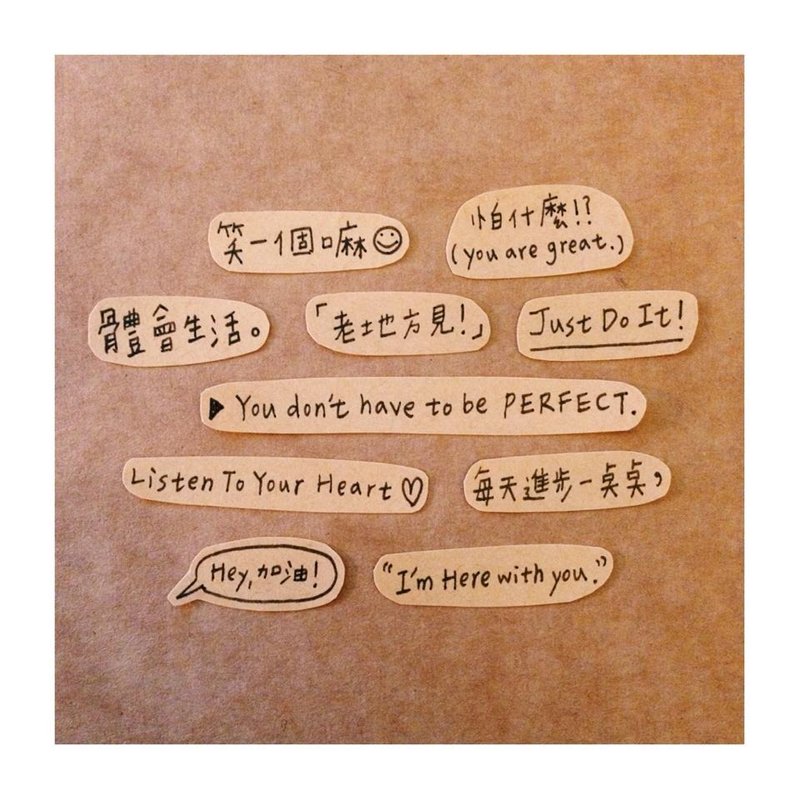 笑一個嘛☺
怕什麼!?
(you are great.)
體會生活。
「老地方見!」
Just Do It!
▶ You don't have to be PERFECT.
Listen To Your Heart ♡
每天進步一桌桌,
Hey,加油!
"I'm Here with you."